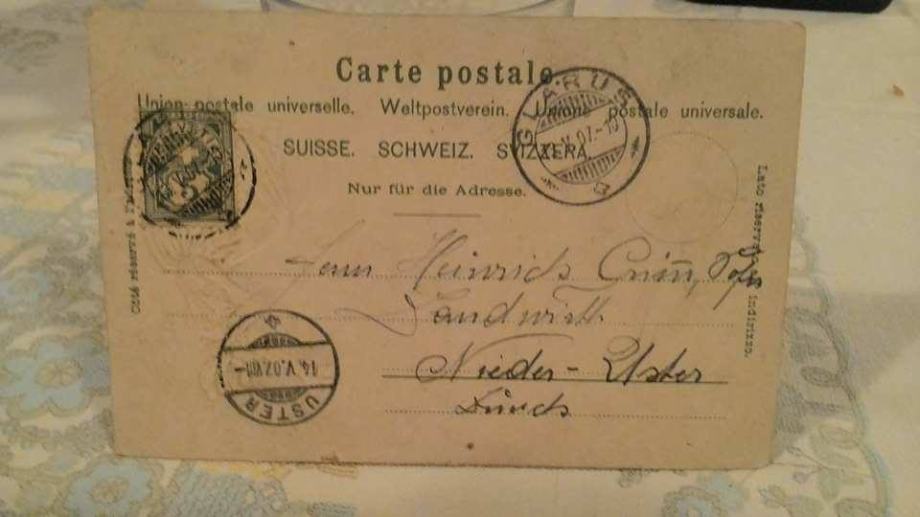 Carte postale.
Union postale universelle. Weltpostverein. Unione postale universale.
SUISSE. SCHWEIZ. SVIZZERA.
Nur für die Adresse.
Côté réservé à l'adresse
Lato riservato indirizzo.
GLARUS
V.07.-10
Herrn Heinrich
Landwirth
Nieder-Uster
Zürich
14.V.07.VII
USTER
5